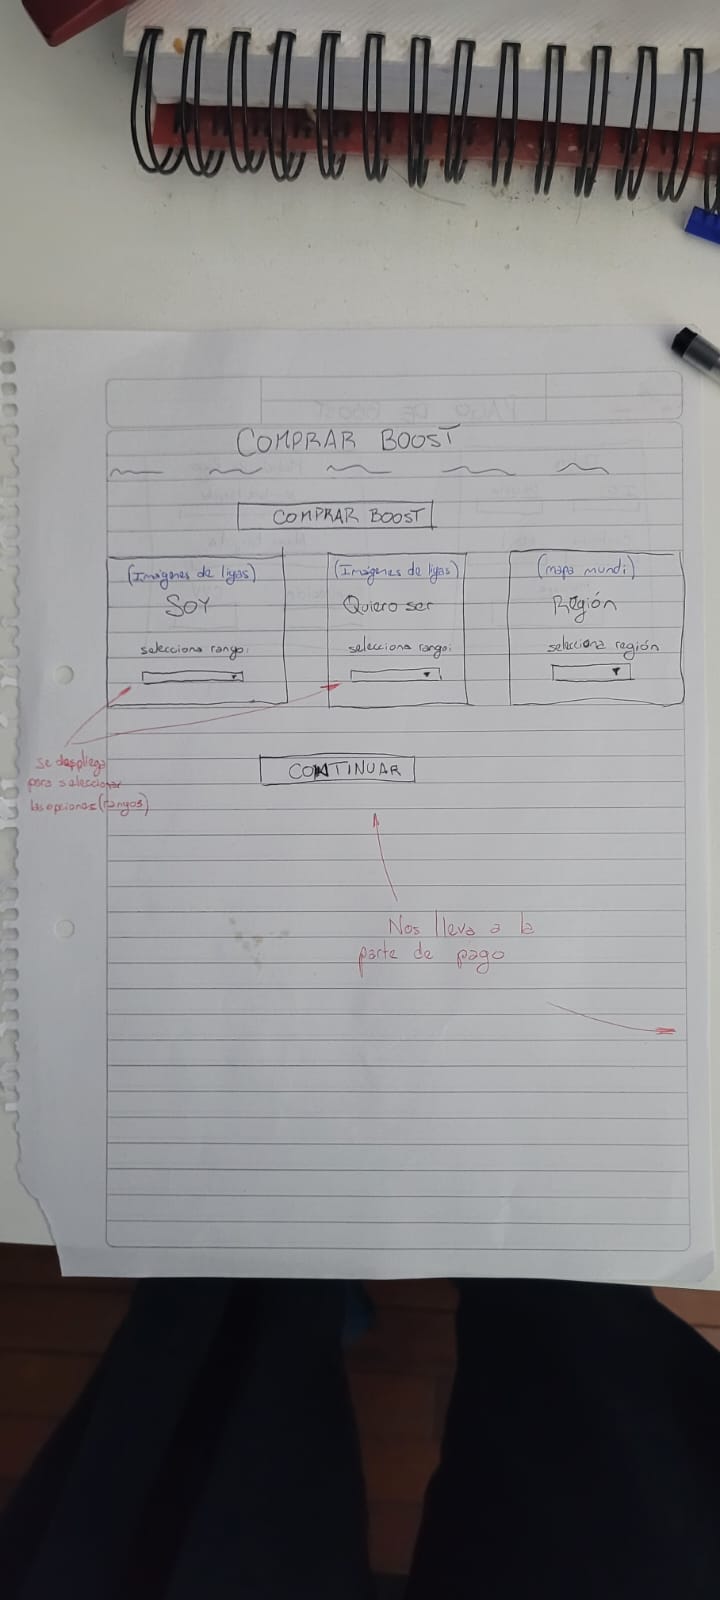 COMPRAR BOOST
COMPRAR BOOST
(Imágenes de ligas)
SOY
selecciona rango:
(Imágenes de ligas)
Quiero ser
selecciona rango:
(mapa mundi)
Región
selecciona región
se despliega
para seleccionar
las opciones (rangos)
CONTINUAR
Nos lleva a la
parte de pago